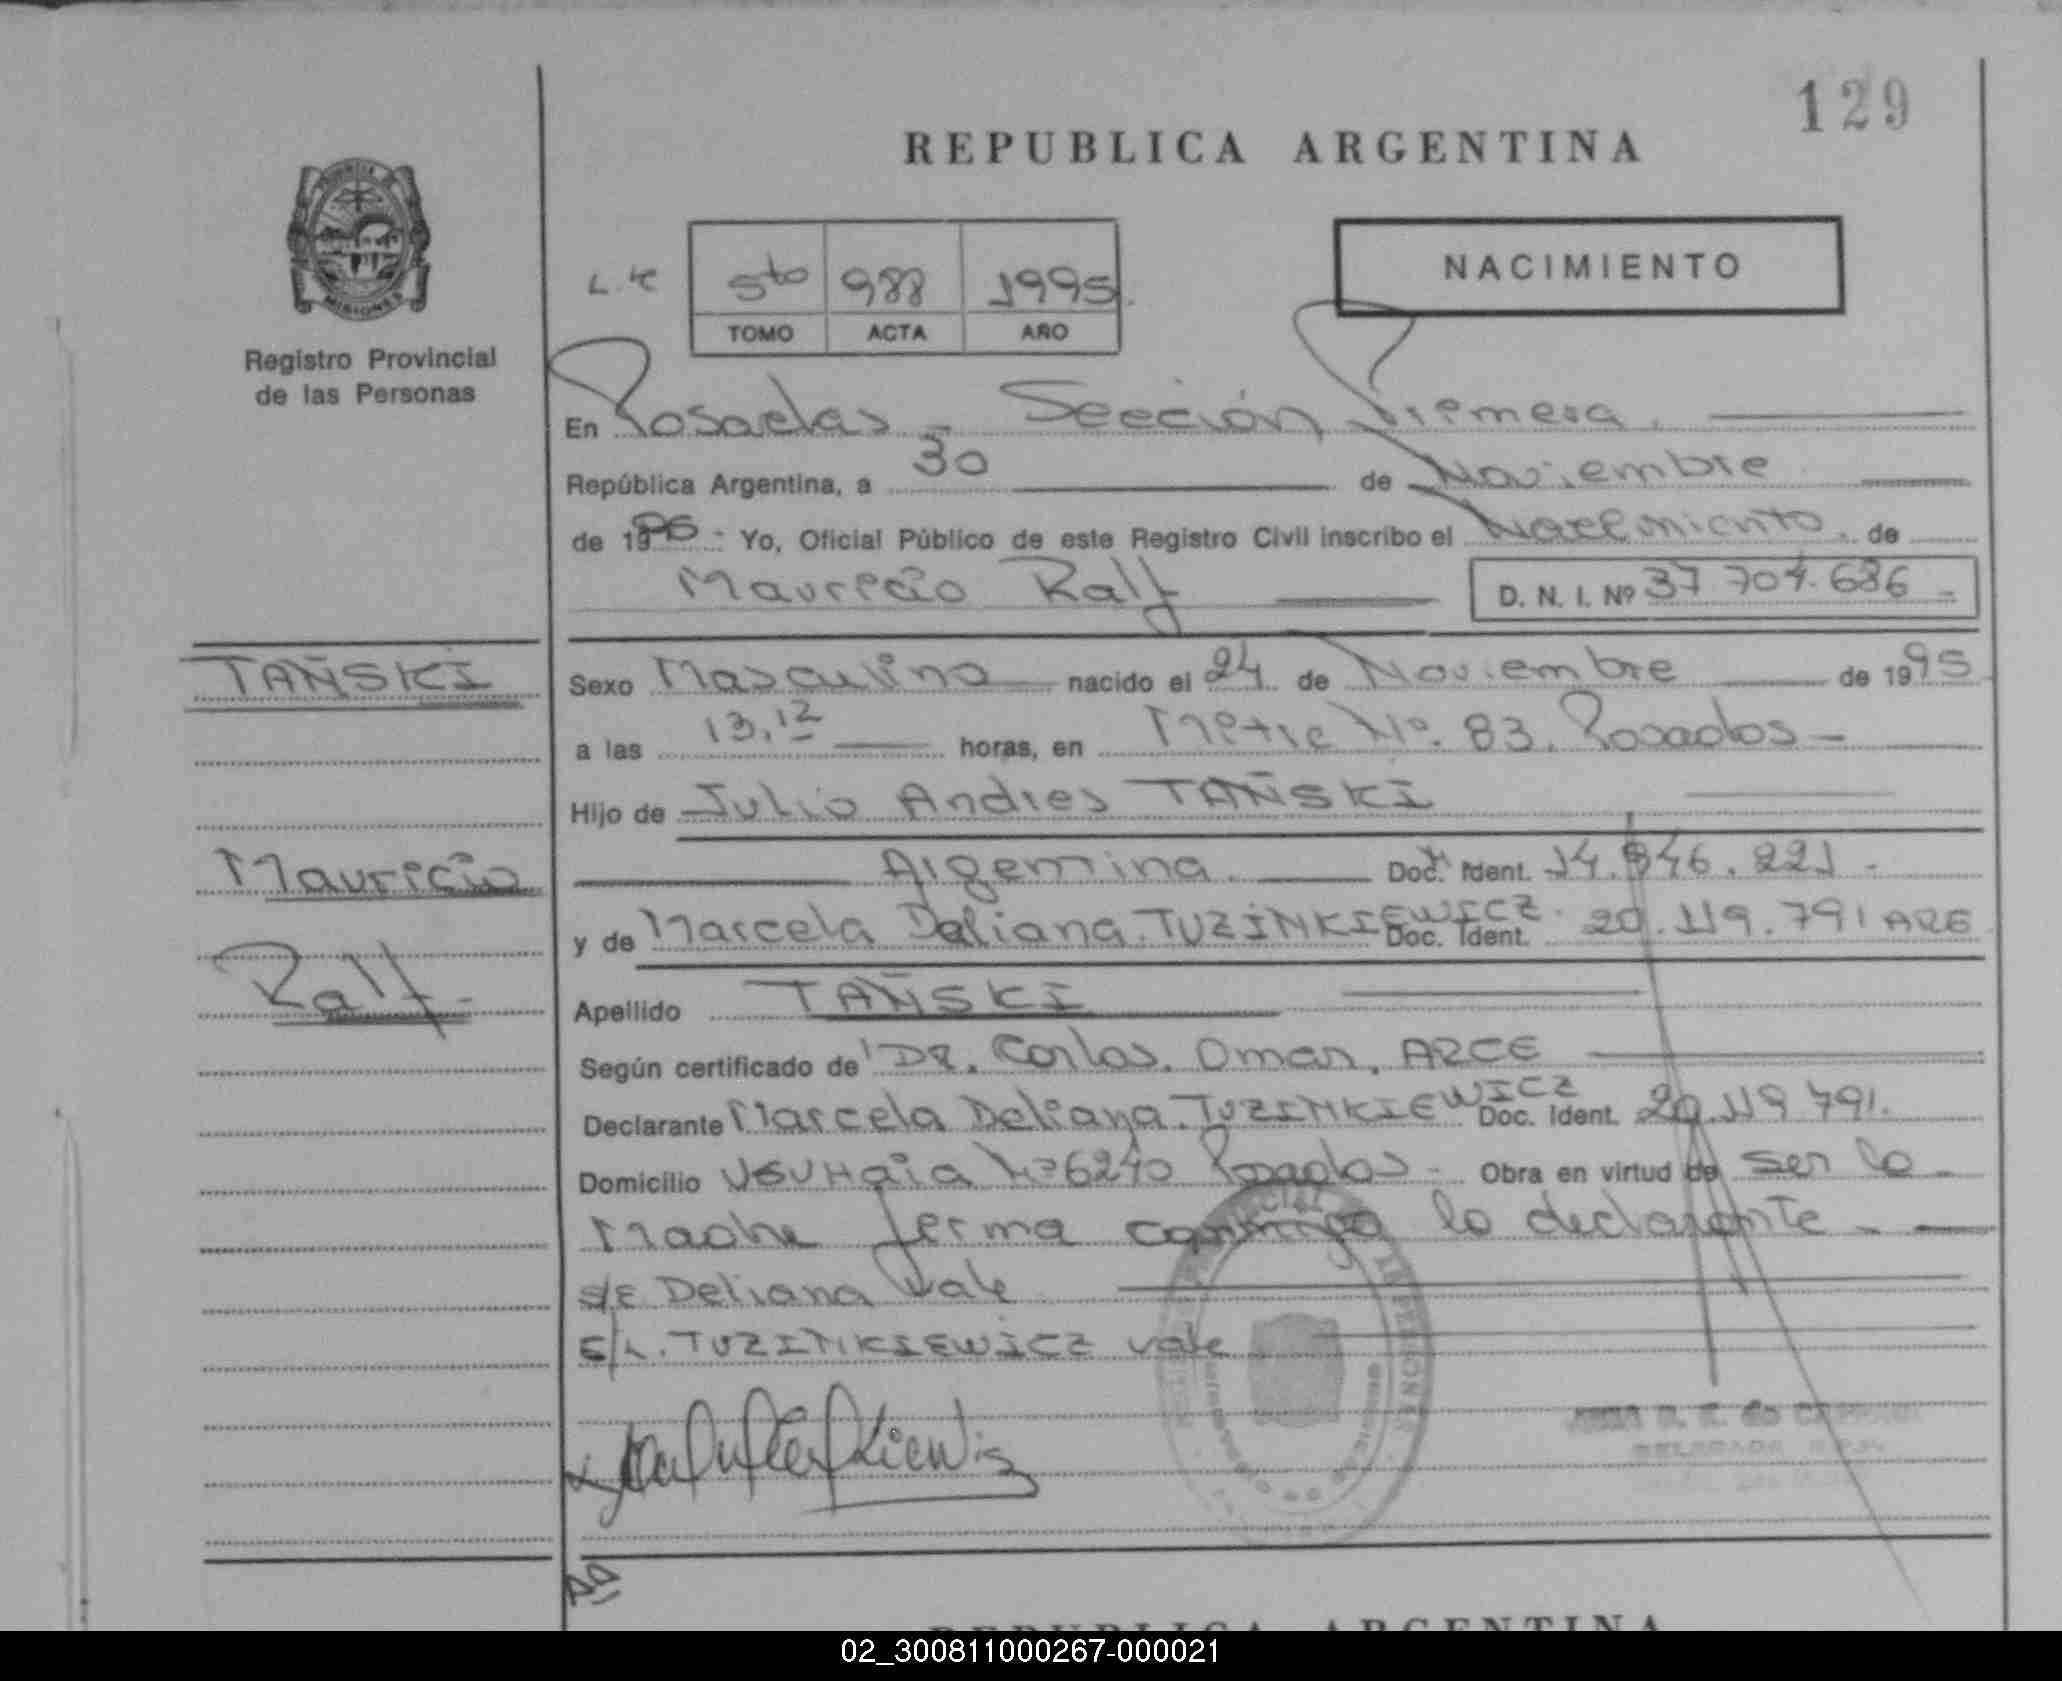 129
REPUBLICA ARGENTINA
MISIONES
Registro Provincial
de las Personas
5to 988 1995
TOMO ACTA AÑO
NACIMIENTO
En Posadas - Sección Primera.
República Argentina, a 30 de Noviembre
de 1995 - Yo, Oficial Público de este Registro Civil inscribo el Nacimiento de
Mauricio Ralf D. N. I. Nº 37.704.686 -
TAÑSKI
Mauricio
Ralf -
Sexo Masculino nacido el 24 de Noviembre de 1995
a las 13,12 horas, en Mitre Nº. 83. Posadas -
Hijo de Julio Andres TAÑSKI
Argentina. Doc. Ident. 14.946.221 -
y de Marcela Deliana TUZINKIEWICZ. Doc. Ident. 20.119.791 ARG
Apellido TAÑSKI
Según certificado de Dr. Carlos Omar ARCE
Declarante Marcela Deliana TUZINKIEWICZ Doc. Ident. 20.119.791.
Domicilio Usuhaia Nº 6240 Posadas - Obra en virtud de ser la
Madre firma conmigo la declarante -
s/E Deliana Vale
E/L. TUZINKIEWICZ vale
REPUBLICA ARGENTINA
02_300811000267-000021